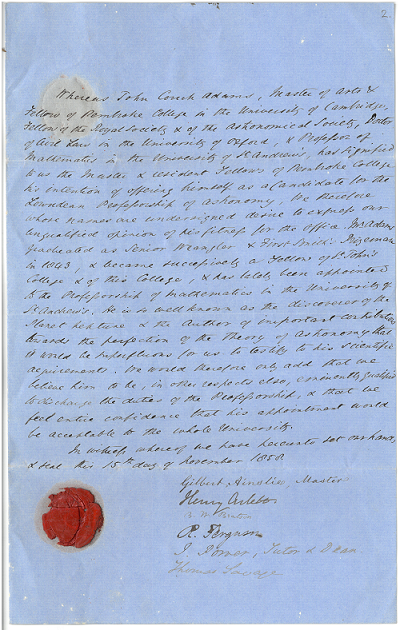 2
Whereas John Couch Adams, Master of Arts &
Fellow of Pembroke College in the University of Cambridge,
Fellow of the Royal Society & of the Astronomical Society, Doctor
of Civil Law in the University of Oxford, & Professor of
Mathematics in the University of St Andrews, has signified
to us the Master & resident Fellows of Pembroke College
his intention of offering himself as a Candidate for the
Lowndean Professorship of Astronomy, We therefore
whose names are undersigned desire to express our
unqualified opinion of his fitness for the Office. Mr Adams
graduated as Senior Wrangler & First Smith's Prizeman
in 1843, & became successively a Fellow of St John's
College & of this College, & has lately been appointed
to the Professorship of Mathematics in the University of
St Andrews. He is so well known as the discoverer of the
Planet Neptune & the Author of important contributions
towards the perfection of the Theory of Astronomy that
it would be superfluous for us to testify to his scientific
acquirements. We would therefore only add that we
believe him to be, in other respects also, eminently qualified
to discharge the duties of the Professorship, & that we
feel entire confidence that his appointment would
be acceptable to the whole University.
In witness whereof we have hereunto set our hands
& seal this 15th day of November 1858
Gilbert Ainslie, Master
Henry Arlett
R. Ferguson
J. Power, Tutor & Dean
Thomas Savage